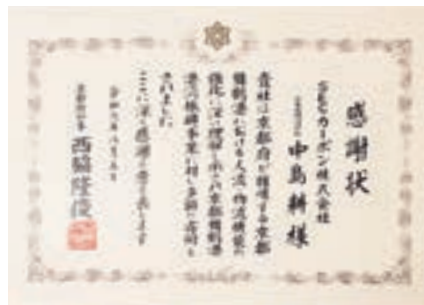 感謝状
SECカーボン株式会社
中島耕様
貴社は京都府が推進する京都
舞鶴港における人流・物流機能の
強化に深い理解を示され京都舞鶴港
されました
ここに深く感謝の意を表します
令和六年八月
京都府知事 西脇隆俊